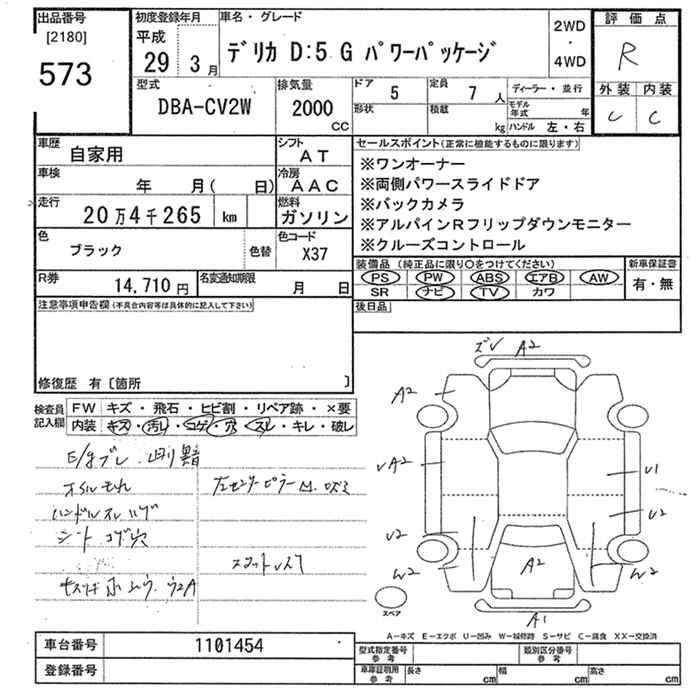 出品番号
[2180]
573
初度登録年月
平成
29 3 月
車名・グレード
デリカ D:5 G パワーパッケージ
2WD
・
4WD
評価点
R
外装 内装
C
型式
DBA-CV2W
排気量
2000
CC
ドア 5
定員 7 人
形状
積載 kg
ディーラー・並行
モデル年式 年
ハンドル 左・右
車歴
自家用
シフト
AT
車検
年 月( 日)
冷房
AAC
走行
20万4千265 km
燃料
ガソリン
色
ブラック
色替
色コード
X37
R券
14,710円
名変通知期限
月 日
セールスポイント(正常に機能するものに限ります)
※ワンオーナー
※両側パワースライドドア
※バックカメラ
※アルパインRフリップダウンモニター
※クルーズコントロール
装備品(純正品に限り○をつけてください)
PS PW ABS エアB AW
SR ナビ TV カワ
新車保証書
有・無
後日品
注意事項申告欄(不具合内容等は具体的に記入して下さい)
修復歴 有〔箇所 〕
検査員記入欄
FW キズ・飛石・ヒビ割・リペア跡・×要
内装 キズ・汚レ・コゲ・穴・スレ・キレ・破レ
オイルもれ
ハンドルスレ
シート コゲ穴
A2
A2
A2
U1
U2
U2
W2
W2
A2
A1
スペア
A-キズ E-エクボ U-凹み W-補修跡 S-サビ C-腐食 XX-交換済
車台番号 1101454
登録番号
型式指定番号 参考
類別区分番号 参考
車庫証明用 参考
長さ cm
幅 cm
高さ cm